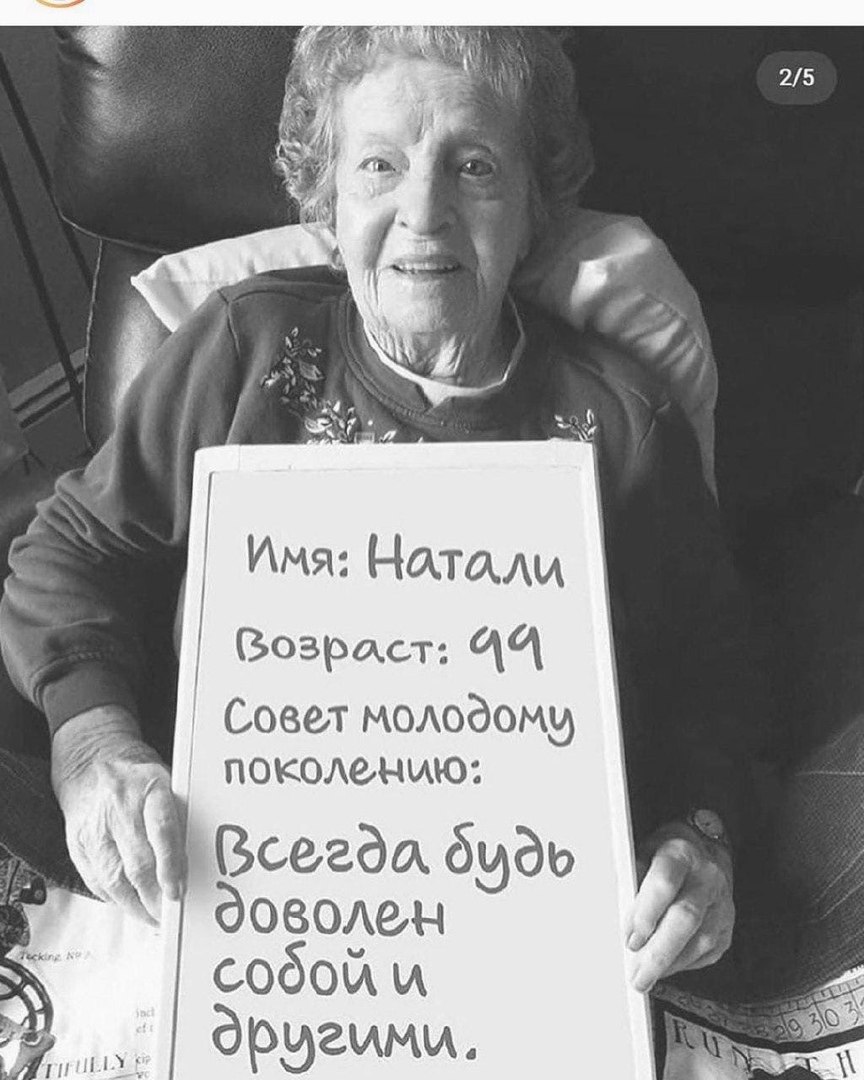 2/5
Имя: Натали
Возраст: 99
Совет молодому
поколению:
Всегда будь
доволен
собой и
другими.
TIFULLY
RUN
TH
29 30 3